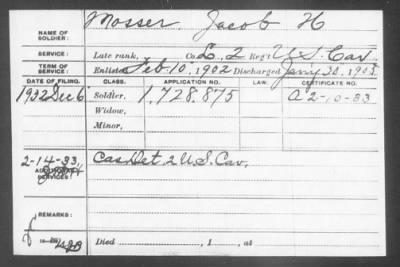 NAME OF SOLDIER: Mosser, Jacob H
SERVICE: Late rank, Co. L. 2 Reg't U S Cav.
TERM OF SERVICE: Enlisted Feb 10, 1902 Discharged Jan'y 1905
DATE OF FILING. CLASS. APPLICATION NO. LAW. CERTIFICATE NO.
1932 Dec 6 Soldier, 1,728,875 A 2-10-33
Widow,
Minor,
2-14-33, Cas Det 2 U.S. Cav.
ADDITIONAL SERVICES:
REMARKS:
Died , 1 , at